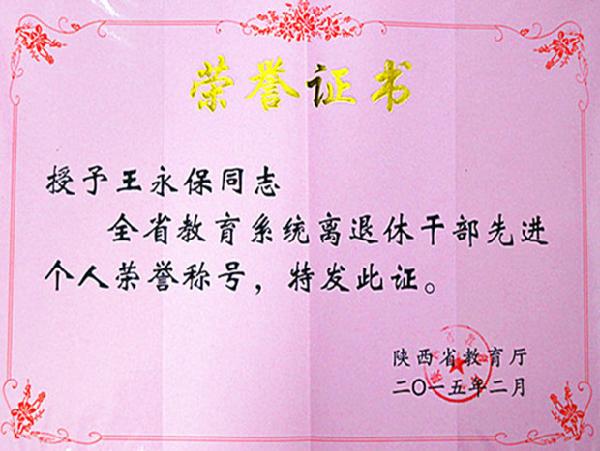 荣誉证书
授予王永保同志
全省教育系统离退休干部先进
个人荣誉称号，特发此证。
陕西省教育厅
二〇一五年二月